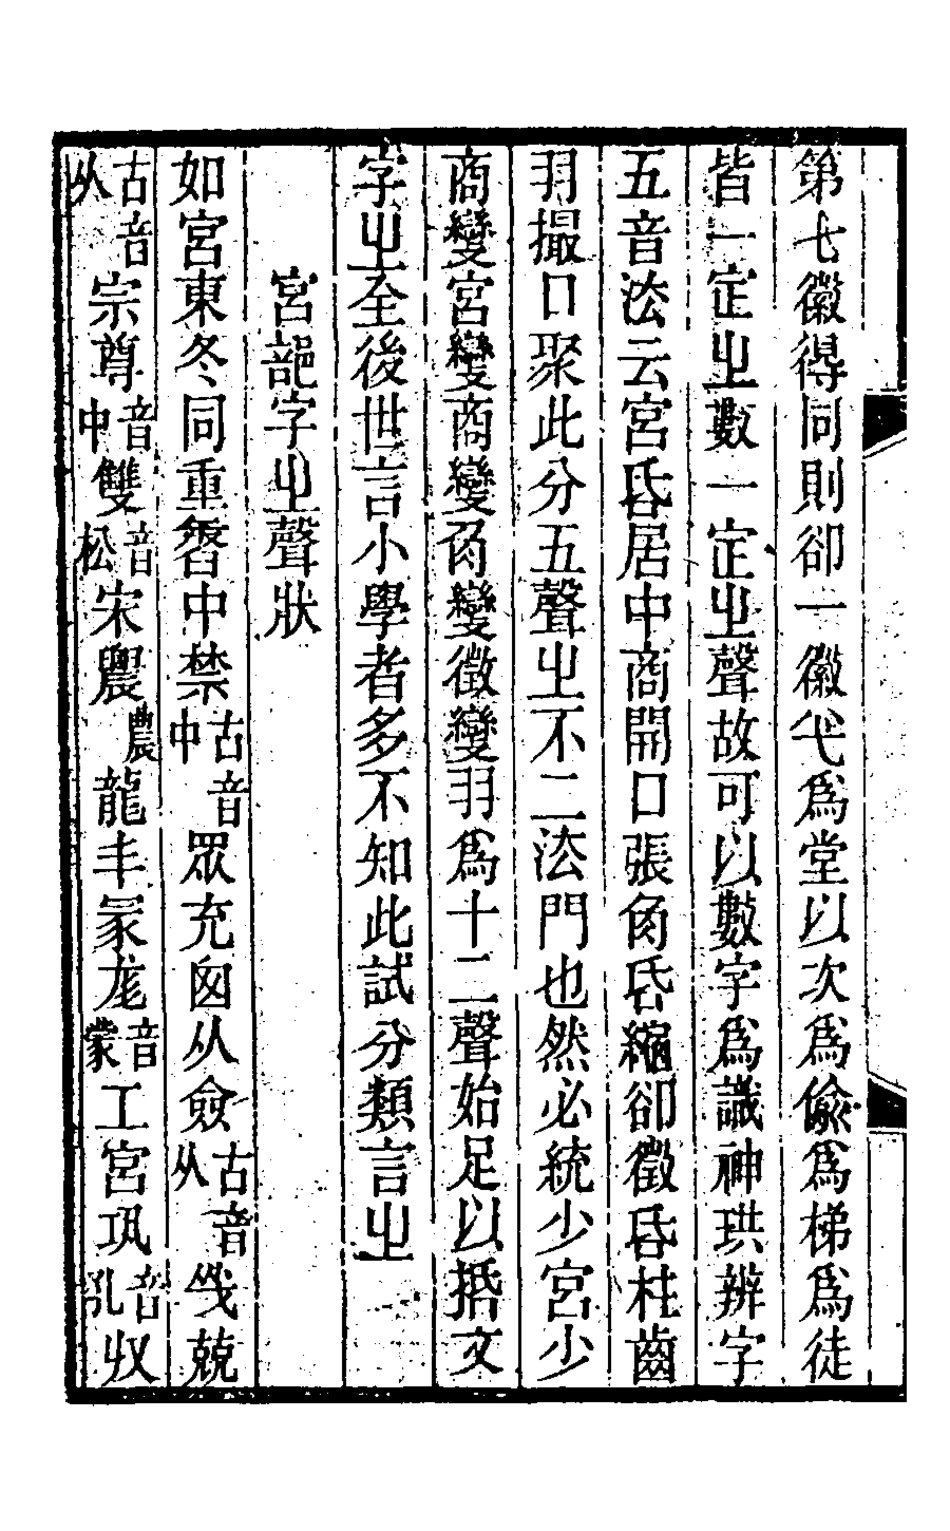 第七徽得同則卻一徽爲堂以次爲偸爲梯爲徒
皆一定㞢數一定㞢聲故可以數字爲識神珙辨字
五音㳒云宮𠯑居中商開口張角𠯑縮卻徵𠯑柱齒
羽撮口聚此分五聲㞢不二㳒門也然必統少宮少
商變宮變商變角變徵變羽爲十二聲始足以㨉文
字㞢至後世言小學者多不知此試分類言㞢
宮部字㞢聲狀
如宮東冬同重中禁古音中眾充囱从僉古音从兢
古音从宗尊音中雙音松宋農農龍丰冢尨音蒙工宮巩音孔収